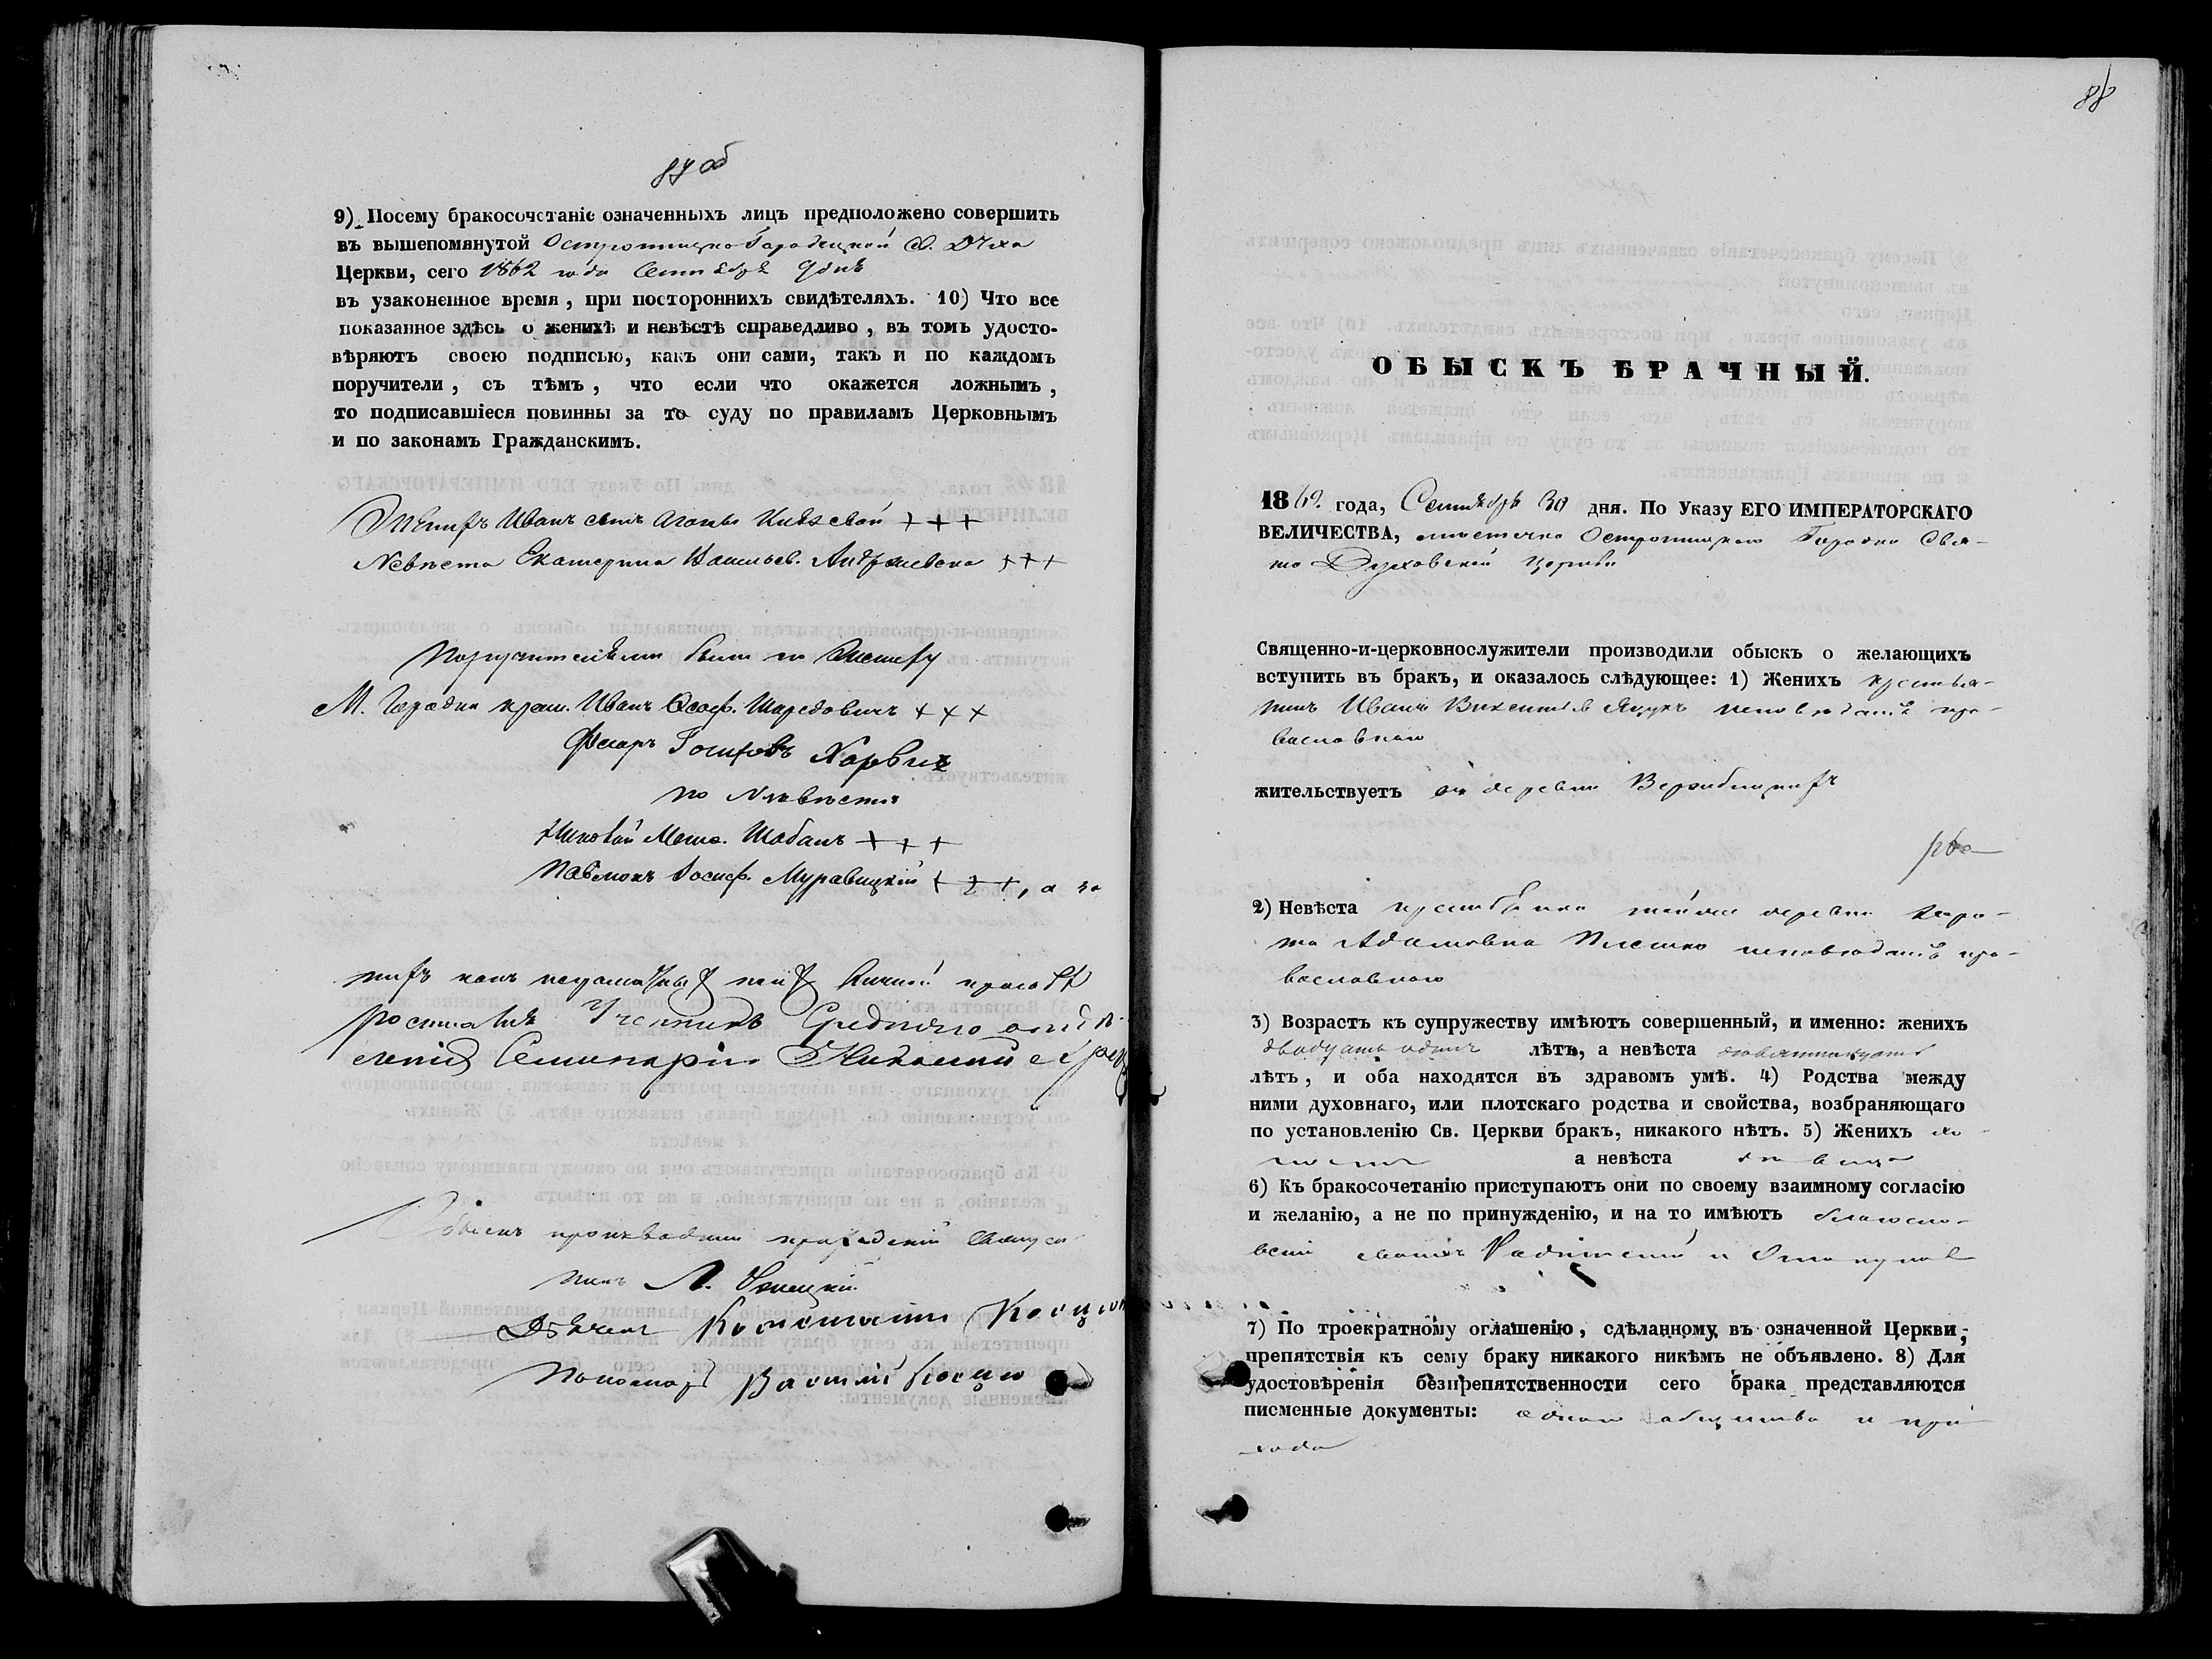 87 об
9) Посему бракосочетаніе означенныхъ лицъ предположено совершить
въ вышепомянутой Острошицко Городецкой С. Духа
Церкви, сего 1862 года Сентября 9 дня
въ узаконенное время, при постороннихъ свидѣтеляхъ. 10) Что все
показанное здѣсь о женихѣ и невѣстѣ справедливо, въ томъ удосто-
вѣряютъ своею подписью, какъ они сами, такъ и по каждомъ
поручители, съ тѣмъ, что если что окажется ложнымъ,
то подписавшіеся повинны за то суду по правиламъ Церковнымъ
и по законамъ Гражданскимъ.
Женихъ Иванъ сынъ +++
Невѣста Екатерина +++
Поручителями были по Жениху
М. Городка крест. Иванъ Осиф. +++
по Невѣстѣ
Шабанъ +++
Іосиф. Муравицкій +++, а за
нихъ какъ неграмотныхъ по ихъ личной прозьбѣ
росписался Ученикъ Средняго отдѣ-
ленія Семинаріи
Обыскъ производили приходскій Священ
никъ Л.
Дьячекъ Константинъ
Пономарь Василій
88
ОБЫСКЪ БРАЧНЫЙ.
1862 года, Сентября 30 дня. По Указу ЕГО ИМПЕРАТОРСКАГО
ВЕЛИЧЕСТВА, мѣстечка Острошицкаго Городка Свя-
то Духовской Церкви
Священно-и-церковнослужители производили обыскъ о желающихъ
вступить въ бракъ, и оказалось слѣдующее: 1) Женихъ крестья-
нинъ Иванъ Викентьевъ Яцукъ исповѣданія пра-
вославнаго
жительствуетъ въ деревни
2) Невѣста крестьянка той же деревни
Адамовна исповѣданія пра-
вославнаго
3) Возрастъ къ супружеству имѣютъ совершенный, и именно: женихъ
двадцать одинъ лѣтъ, а невѣста девятнадцать
лѣтъ, и оба находятся въ здравомъ умѣ. 4) Родства между
ними духовнаго, или плотскаго родства и свойства, возбраняющаго
по установленію Св. Церкви бракъ, никакого нѣтъ. 5) Женихъ хо-
лостъ а невѣста дѣвица
6) Къ бракосочетанію приступаютъ они по своему взаимному согласію
и желанію, а не по принужденію, и на то имѣютъ благосло-
веніе своихъ Родителей и Опекуновъ
7) По троекратному оглашенію, сдѣланному въ означенной Церкви,
препятствія къ сему браку никакого никѣмъ не объявлено. 8) Для
удостовѣренія безпрепятственности сего брака представляются
писменные документы: одного общества и при
хода